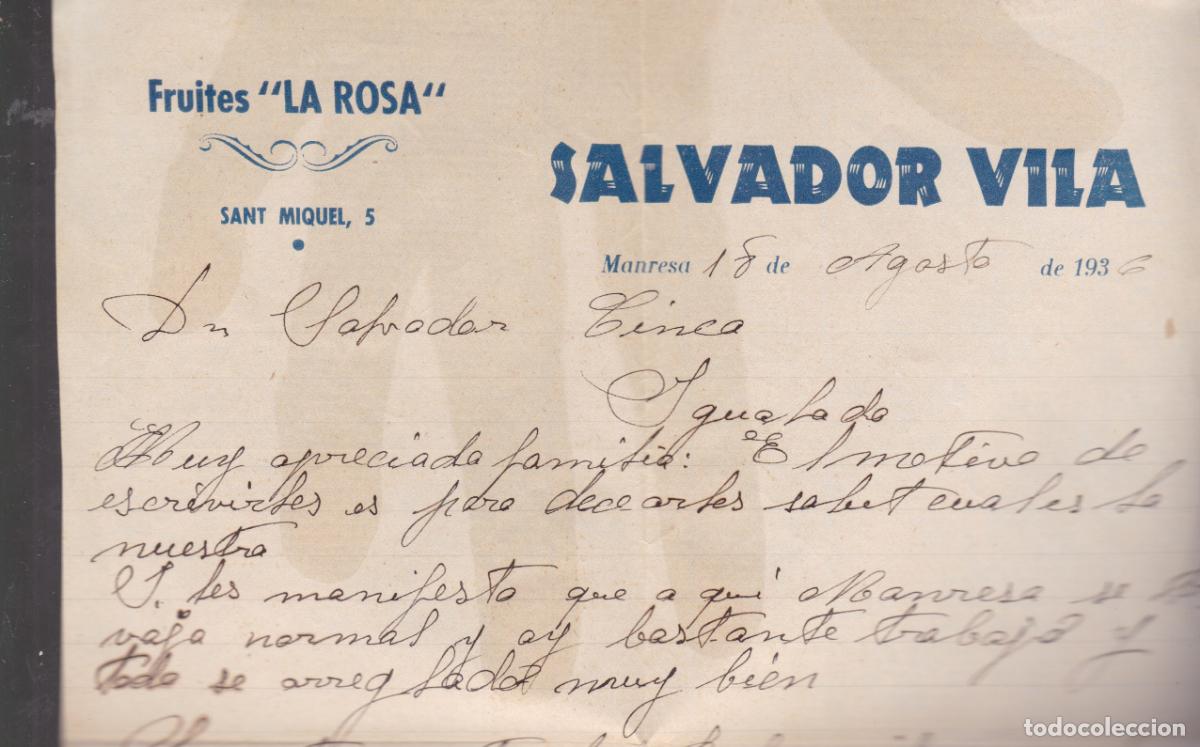 Fruites "LA ROSA"
SANT MIQUEL, 5
SALVADOR VILA
Manresa 18 de Agosto de 1936
Dn Salvador Cinca
Igualada
Muy apreciada familia: El motivo de
escrivirles es para decearles salut cual es la
nuestra
I les manifesto que aqui Manresa se
vaja normal y ay bastante trabajo y
todo se arreglado muy bién
todocoleccion